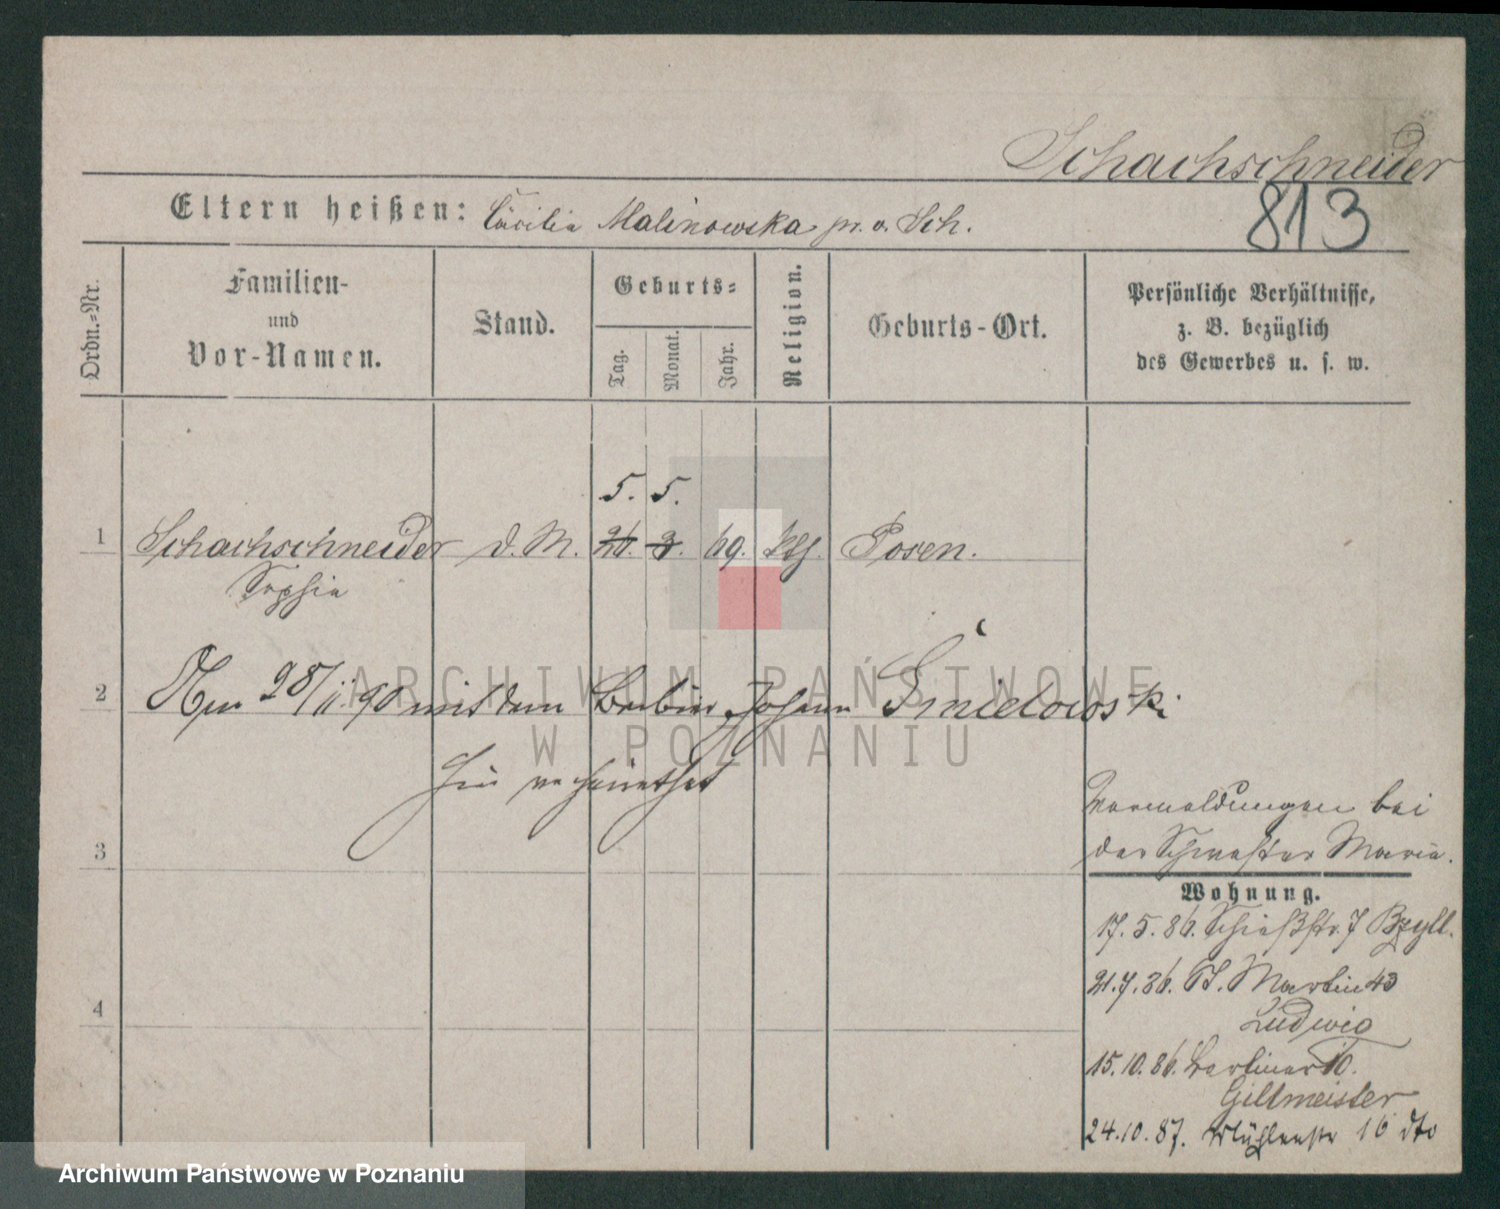 Schachschneider
813
Eltern heißen: Cäcilia Malinowska pr. v. Sch.
Ordn.-Nr.
Familien-
und
Vor-Namen.
Stand.
Geburts-
Tag.
Monat.
Jahr.
Religion.
Geburts-Ort.
Persönliche Verhältnisse,
z. B. bezüglich
des Gewerbes u. s. w.
5. 5.
1 Schachschneider d. M. 26. 3. 69. kth. Posen.
Sophia
2 Am 28/11.90 mit dem Barbier Johann Śmielowski
hier verheirathet
3
4
Vormeldungen bei
der Schwester Maria.
Wohnung.
17. 5. 86. Schießstr. 7 Bzyll.
21. 7. 86. St. Martin 43
Ludwig
15. 10. 86. Berliner 10.
Gillmeister
24. 10. 87. Mühlenstr 16 dto
ARCHIWUM PAŃSTWOWE
W POZNANIU
Archiwum Państwowe w Poznaniu